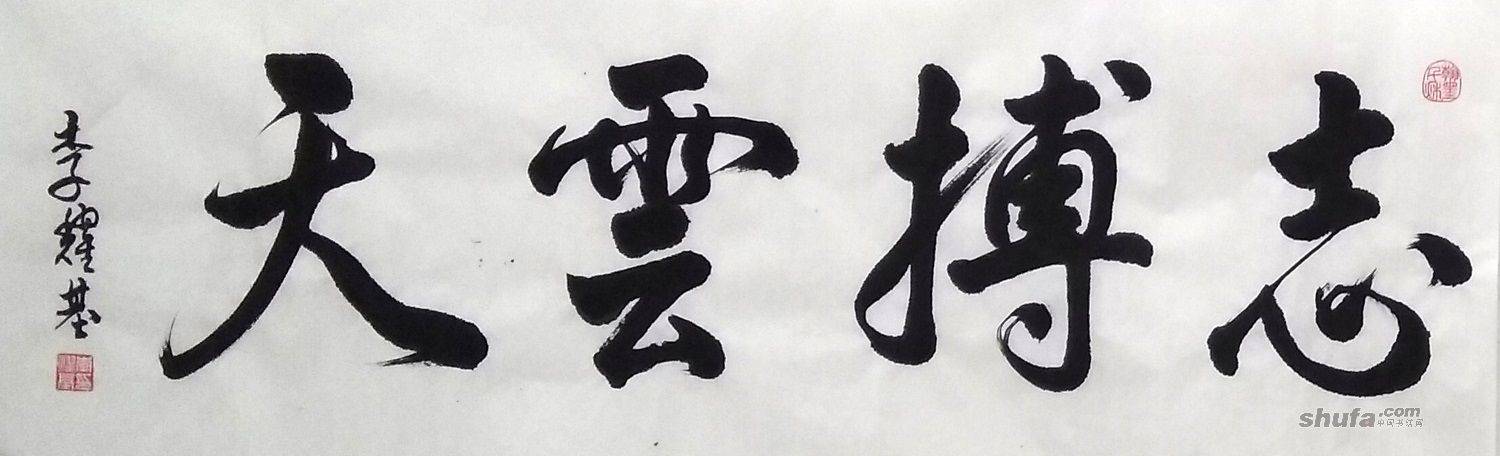 志搏雲天
李耀基
shufa.com
中国书法网